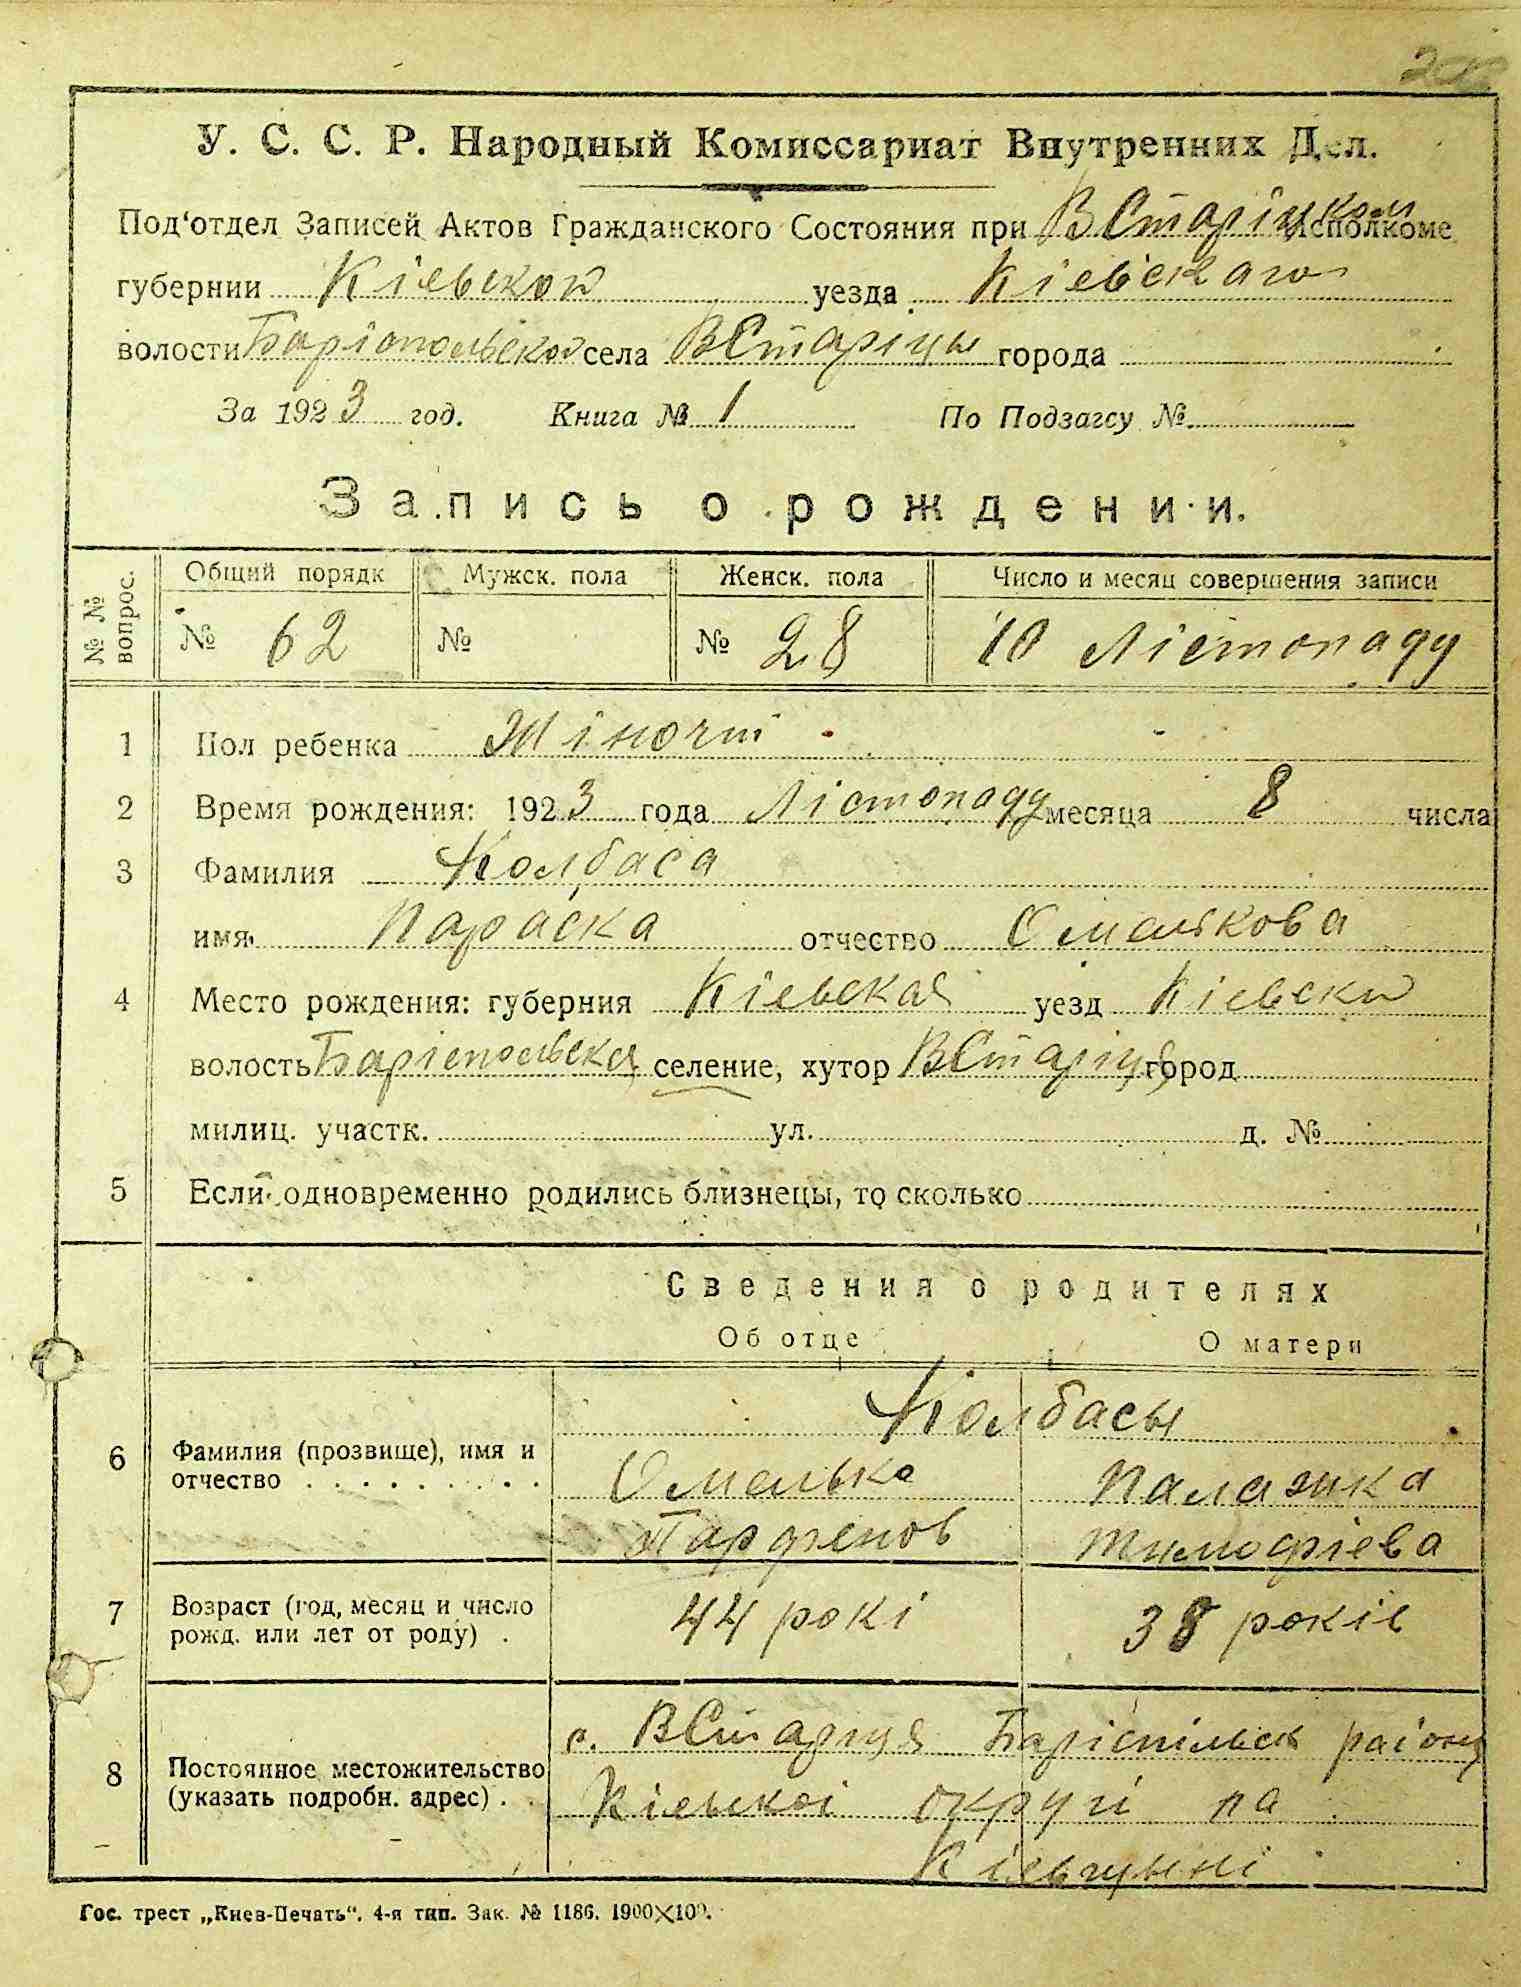 У. С. С. Р. Народный Комиссариат Внутренних Дел.
Под'отдел Записей Актов Гражданского Состояния при ВСтаріцком исполкоме
губернии Кіевской уезда Кіевскаго
волости Баріспольской села ВСтаріцы города
За 1923 год. Книга № 1 По Подзагсу №
Запись о рождении.
№ № вопрос. Общий порядк Мужск. пола Женск. пола Число и месяц совершения записи
№ 62 № № 28 10 Лістопаду
1 Пол ребенка Жіночій
2 Время рождения: 1923 года Лістопаду месяца 8 числа
3 Фамилия Колбаса
имя Параска отчество Омелькова
4 Место рождения: губерния Кіевская уезд Кіевски
волость Баріспольска селение, хутор ВСтаріця город
милиц. участк. ул. д. №
5 Если одновременно родились близнецы, то сколько
Сведения о родителях
Об отце О матери
Колбасы
6 Фамилия (прозвище), имя и отчество Омелько Палажка
Парфенов Тимофіева
7 Возраст (год, месяц и число рожд. или лет от роду) 44 рокі 38 років
8 Постоянное местожительство (указать подробн. адрес) с. ВСтариця Баріспільск раіону
Кіевскоі округі на
Кіевщыні
Гос. трест „Киев-Печать". 4-я тип. Зак. № 1186. 1900×100.